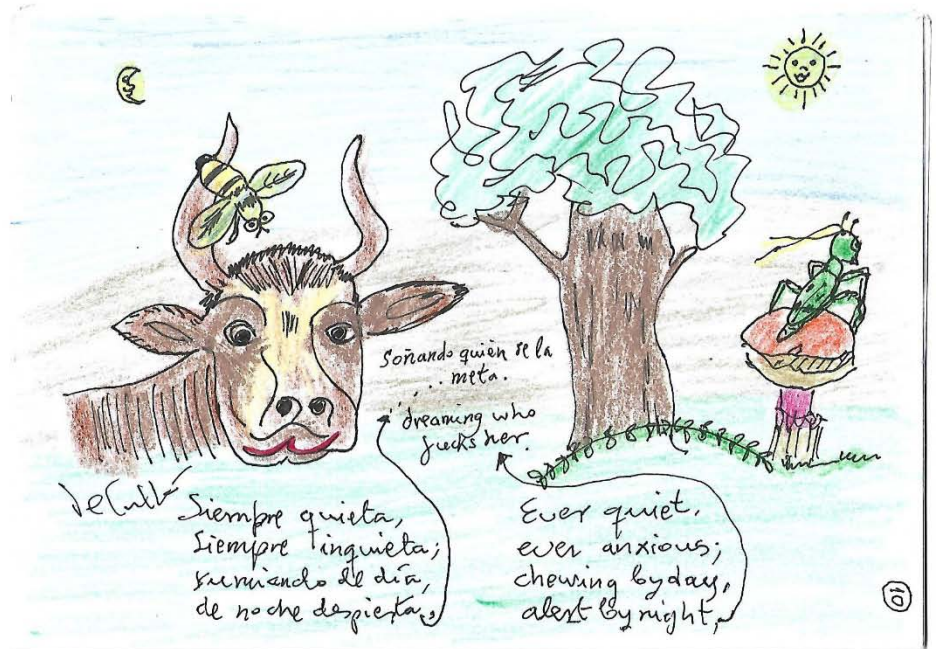 Soñando quién se la
meta.
dreaming who
fucks her.
De Cullá
Siempre quieta,
siempre inquieta;
rumiando de día,
de noche despierta,
Ever quiet,
ever anxious;
chewing by day,
alert by night,
10